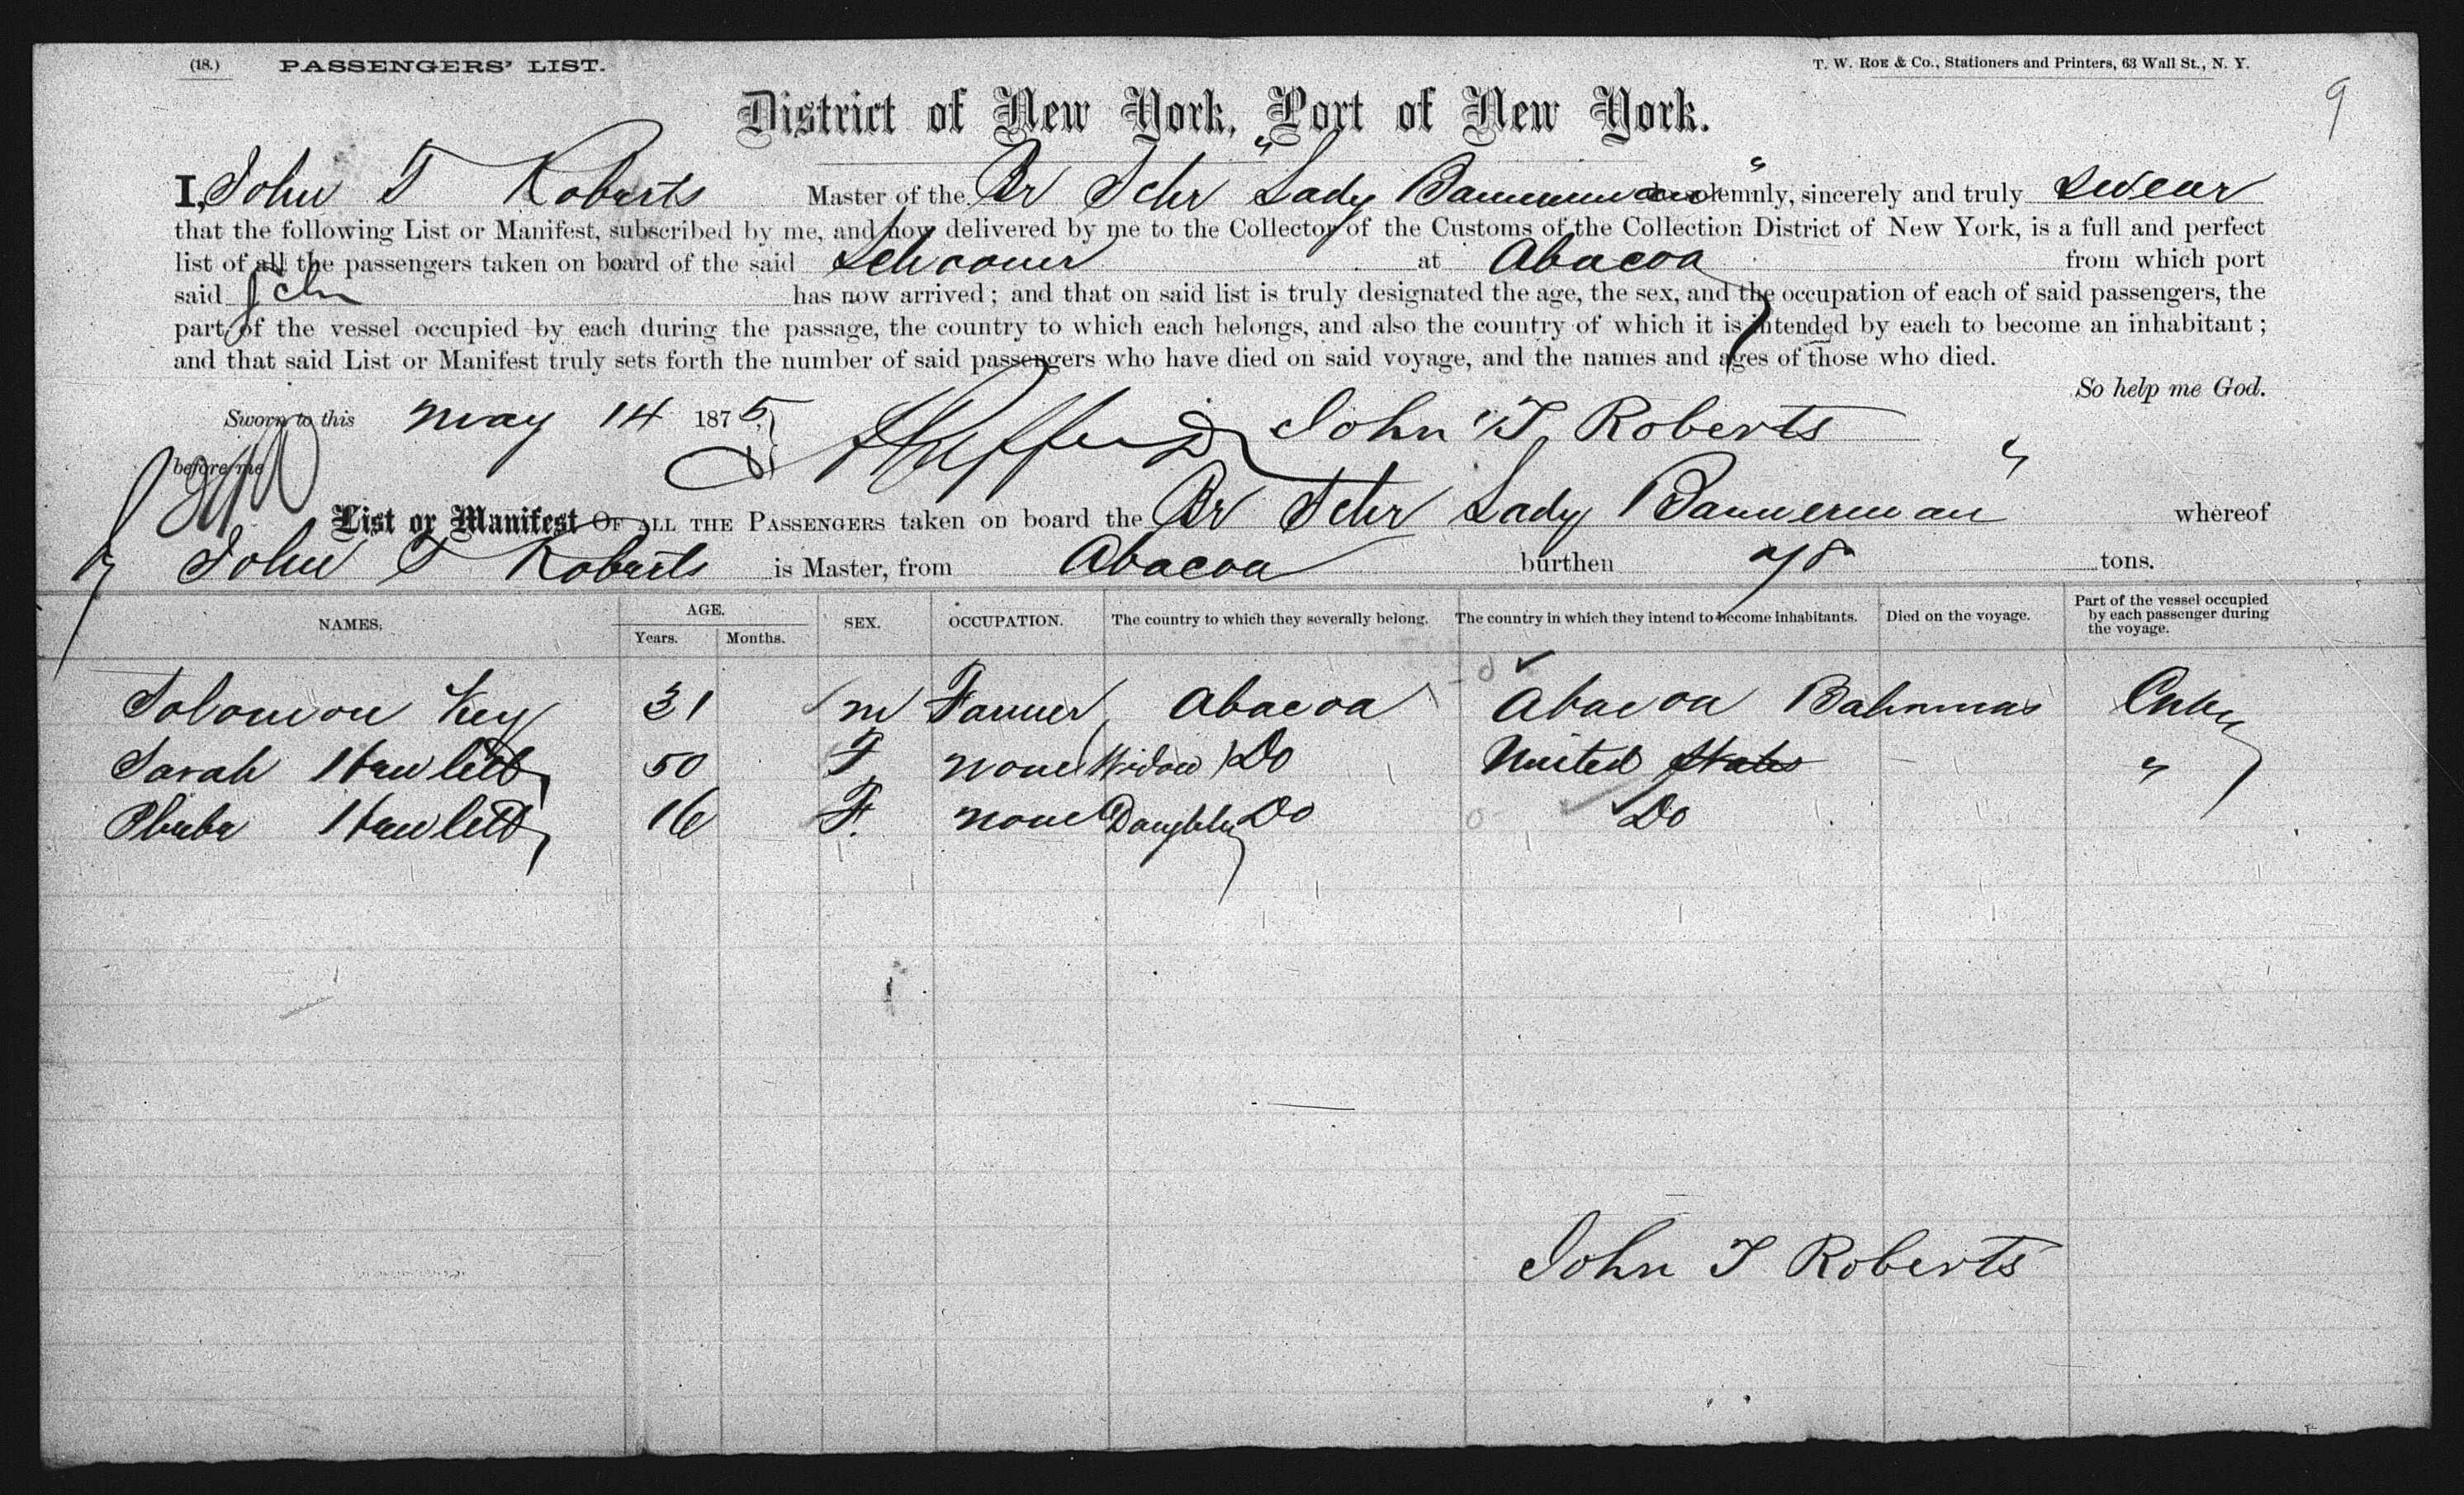 (18.) PASSENGERS' LIST. T. W. ROE & Co., Stationers and Printers, 63 Wall St., N. Y.
9
District of New York, Port of New York.
I, John T Roberts Master of the Br Schr "Lady Bannerman" do solemnly, sincerely and truly swear
that the following List or Manifest, subscribed by me, and now delivered by me to the Collector of the Customs of the Collection District of New York, is a full and perfect
list of all the passengers taken on board of the said Schooner at Abacoa from which port
said Schr has now arrived; and that on said list is truly designated the age, the sex, and the occupation of each of said passengers, the
part of the vessel occupied by each during the passage, the country to which each belongs, and also the country of which it is intended by each to become an inhabitant;
and that said List or Manifest truly sets forth the number of said passengers who have died on said voyage, and the names and ages of those who died.
So help me God.
Sworn to this May 14 1875 John T Roberts
before me
List or Manifest OF ALL THE PASSENGERS taken on board the Br Schr Lady Bannerman" whereof
John T Roberts is Master, from Abacoa burthen 78 tons.
NAMES. AGE. Years. Months. SEX. OCCUPATION. The country to which they severally belong. The country in which they intend to become inhabitants. Died on the voyage. Part of the vessel occupied by each passenger during the voyage.
Solomon Key 31 M Farmer Abacoa Abacoa Bahamas
Sarah Hewlett 50 F none (Widow) Do United States "
Pheba Hewlett 16 F. none Daughter Do Do
John T Roberts